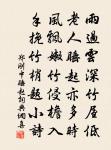 雨過雲深竹屋低
老人睡亦多時
風飄嫩竹侵檐入
手挽竹梢題小詩
鄭剛中睡起詞典網